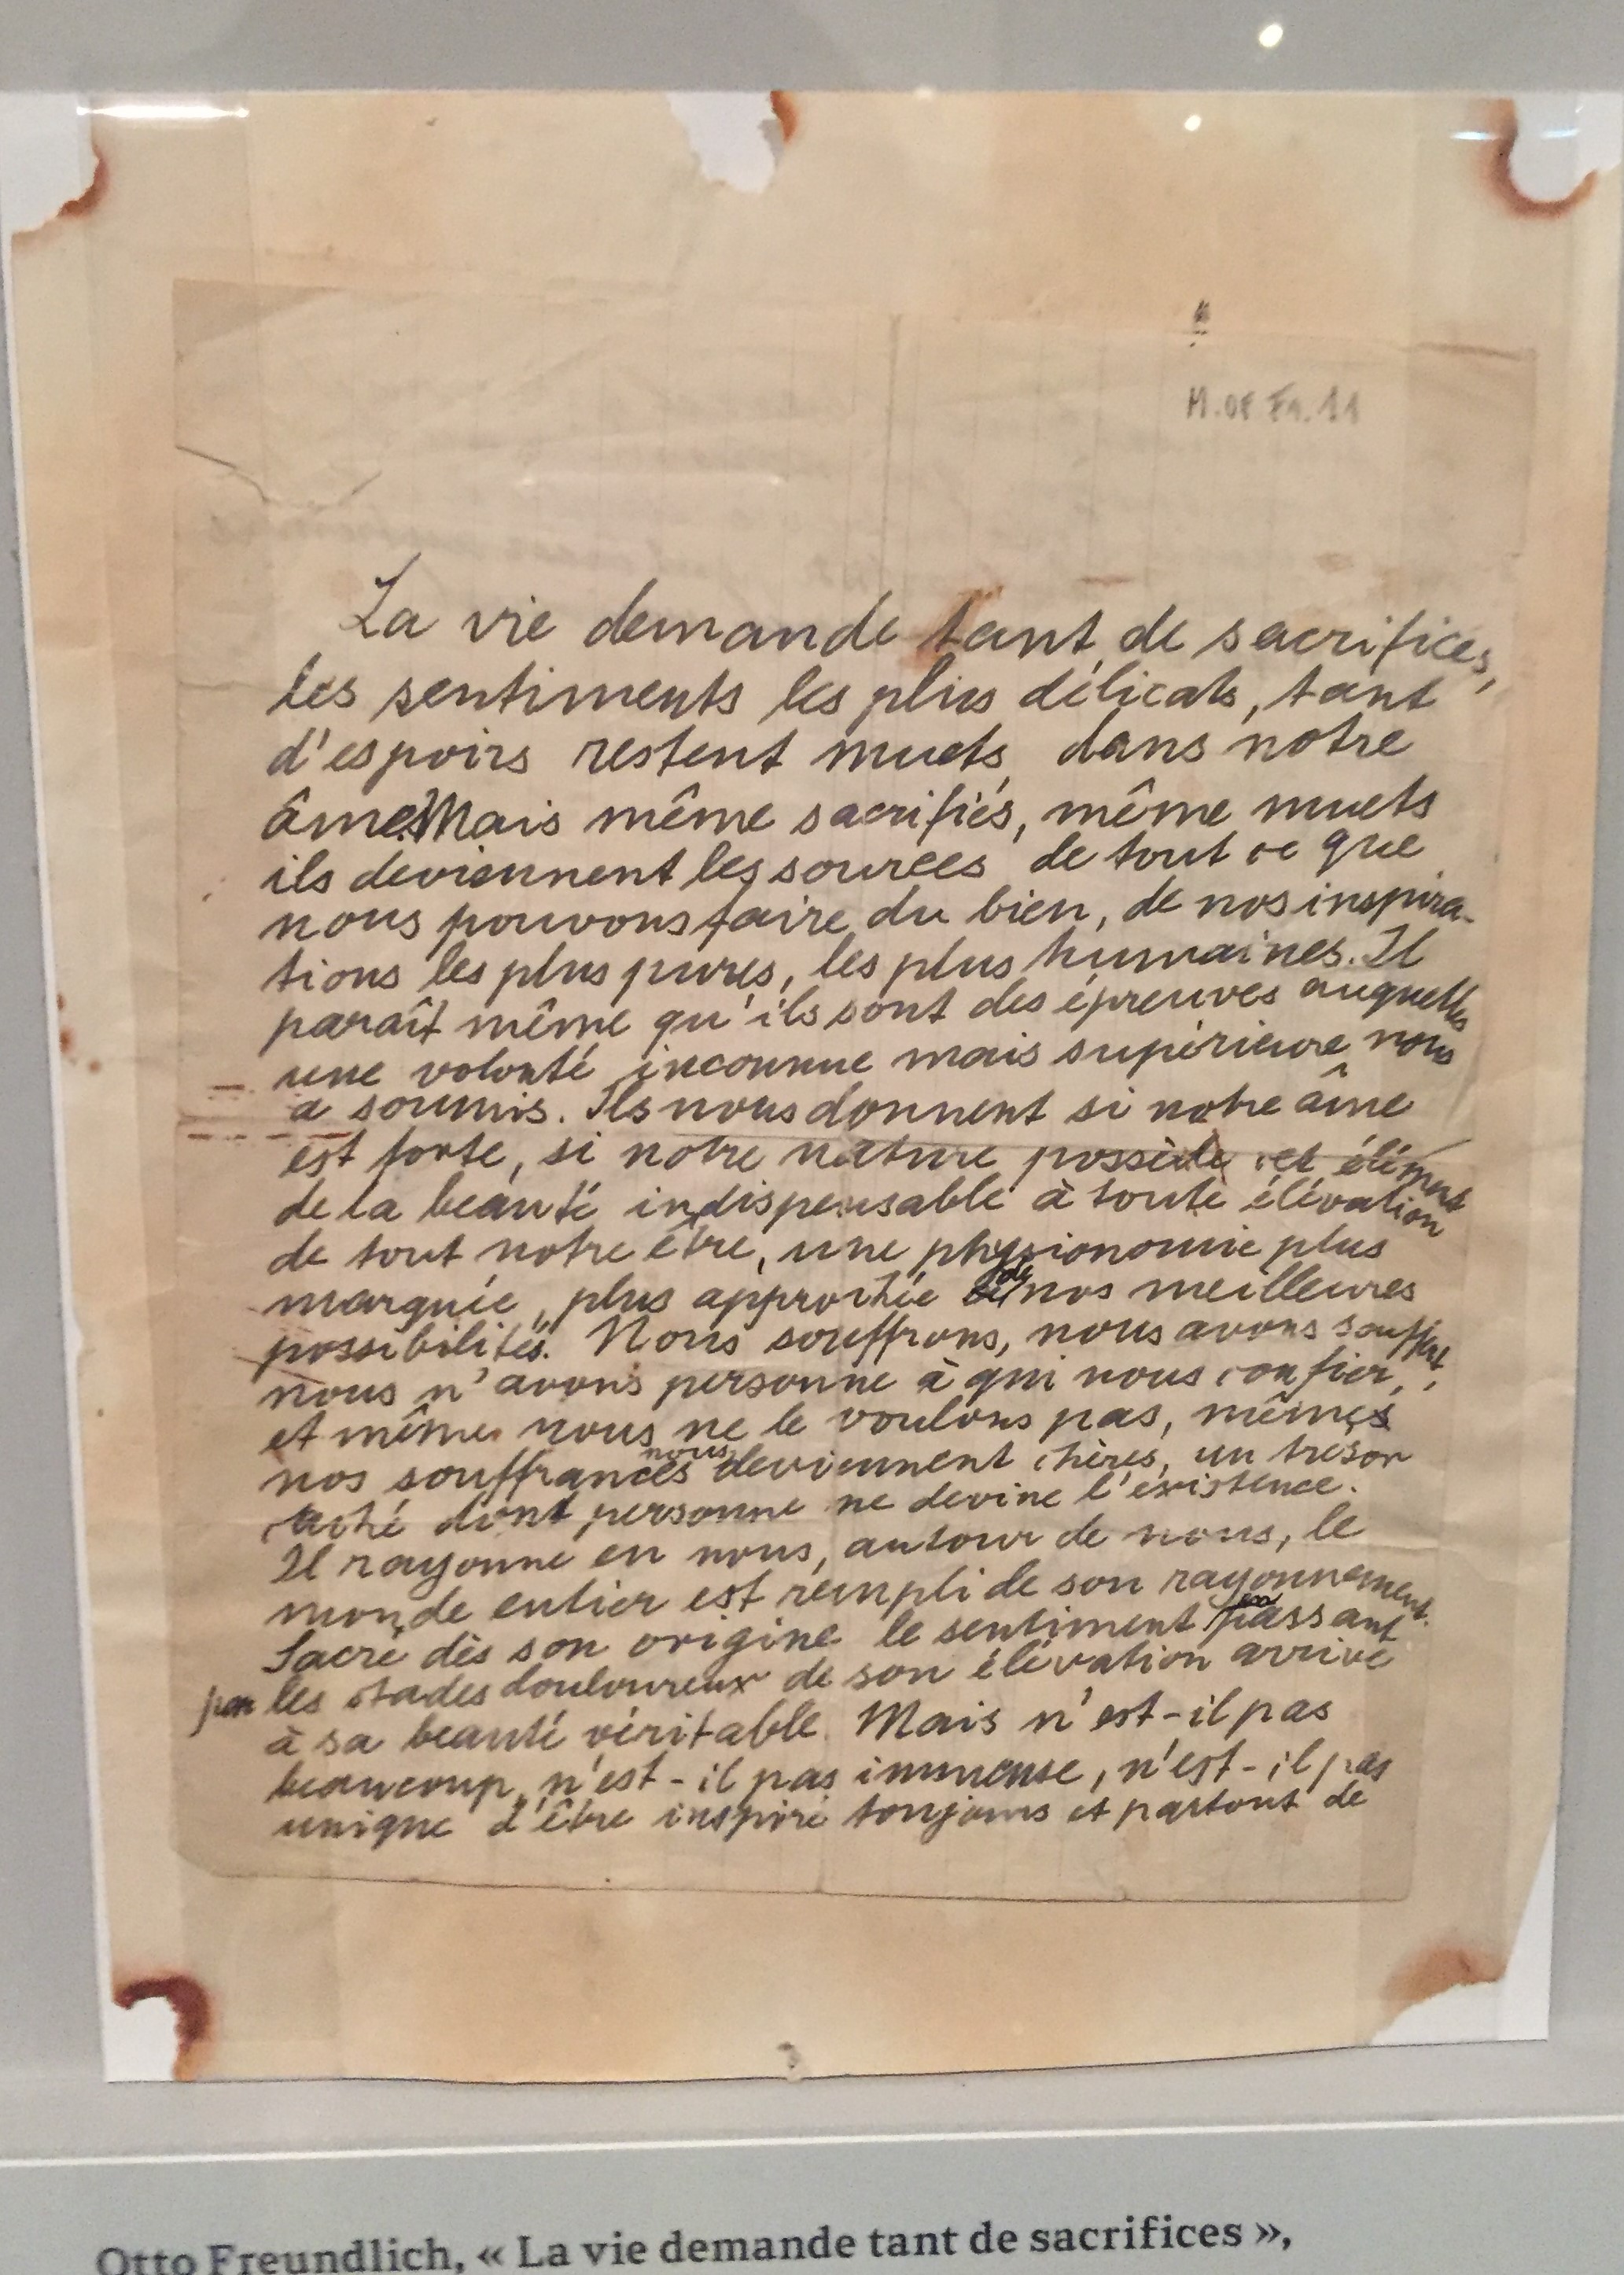 M.OF Fr. 11
La vie demande tant de sacrifices,
les sentiments les plus délicats, tant
d'espoirs restent muets dans notre
âme. Mais même sacrifiés, même muets
ils deviennent les sources de tout ce que
nous pouvons faire du bien, de nos inspira-
tions les plus pures, les plus humaines. Il
paraît même qu'ils sont des épreuves auquelles
une volonté inconnue mais supérieure nous
a soumis. Ils nous donnent si notre âme
est forte, si notre nature possède cet élément
de la beauté indispensable à toute élévation
de tout notre être, une physionomie plus
marquée, plus approchée de nos meilleures
possibilités. Nous souffrons, nous avons souffert,
nous n'avons personne à qui nous confier,
et même nous ne le voulons pas, mêmes
nos souffrances nous deviennent chères, un trésor
caché dont personne ne devine l'existence.
Il rayonne en nous, autour de nous, le
monde entier est rempli de son rayonnement.
Sacré dès son origine le sentiment passant
par les stades douloureux de son élévation arrive
à sa beauté véritable. Mais n'est-il pas
beaucoup, n'est-il pas immense, n'est-il pas
unique d'être inspiré toujours et partout de
Otto Freundlich, « La vie demande tant de sacrifices »,